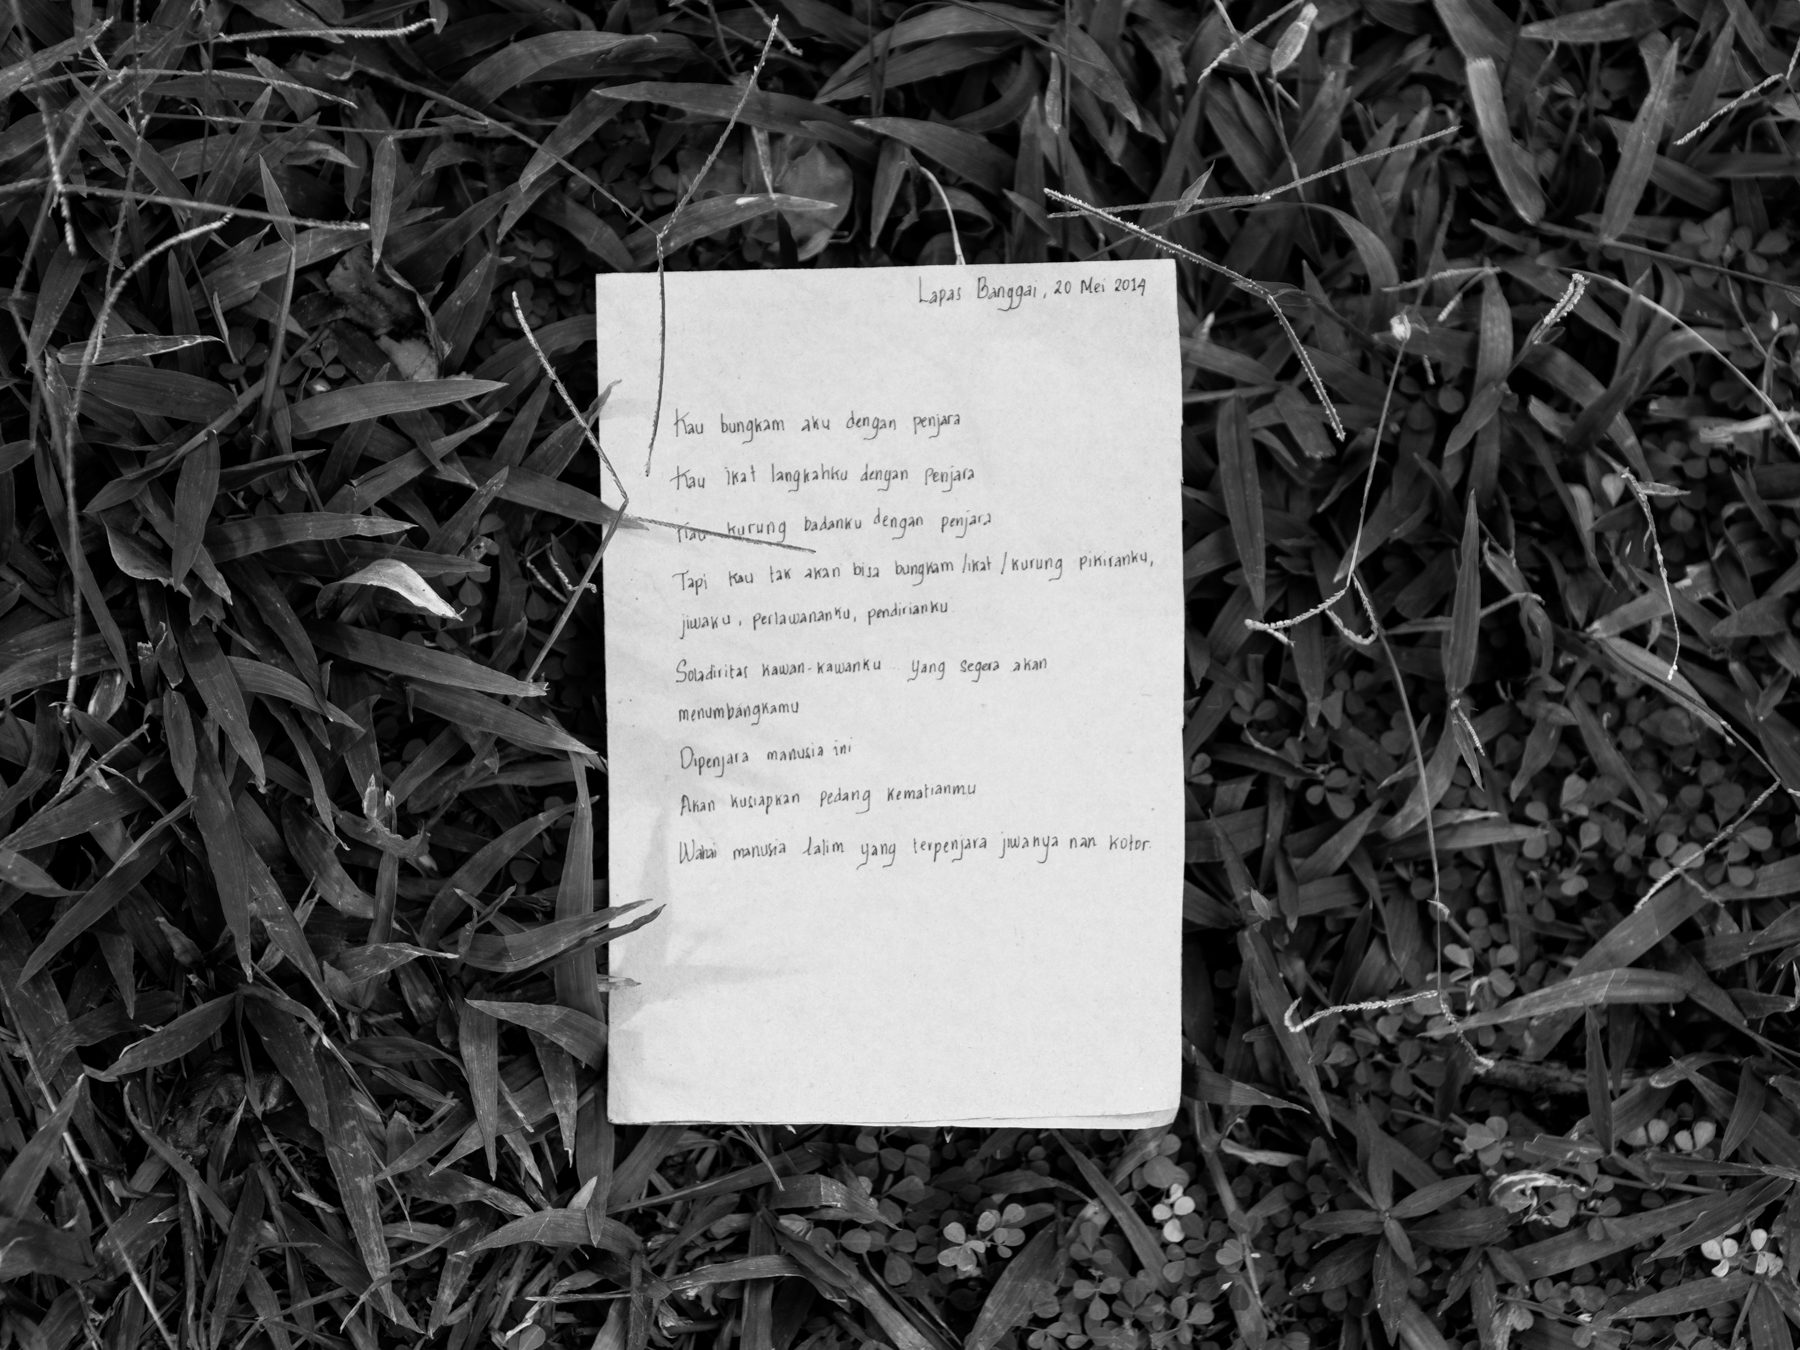 Lapas Banggai, 20 Mei 2014
Kau bungkam aku dengan penjara
Kau ikat langkahku dengan penjara
Kau kurung badanku dengan penjara
Tapi kau tak akan bisa bungkam /ikat /kurung pikiranku,
jiwaku, perlawananku, pendirianku
Soladiritas kawan-kawanku .. yang segera akan
menumbangkamu
Dipenjara manusia ini
Akan kusiapkan pedang kematianmu
Wahai manusia lalim yang terpenjara jiwanya nan kotor.